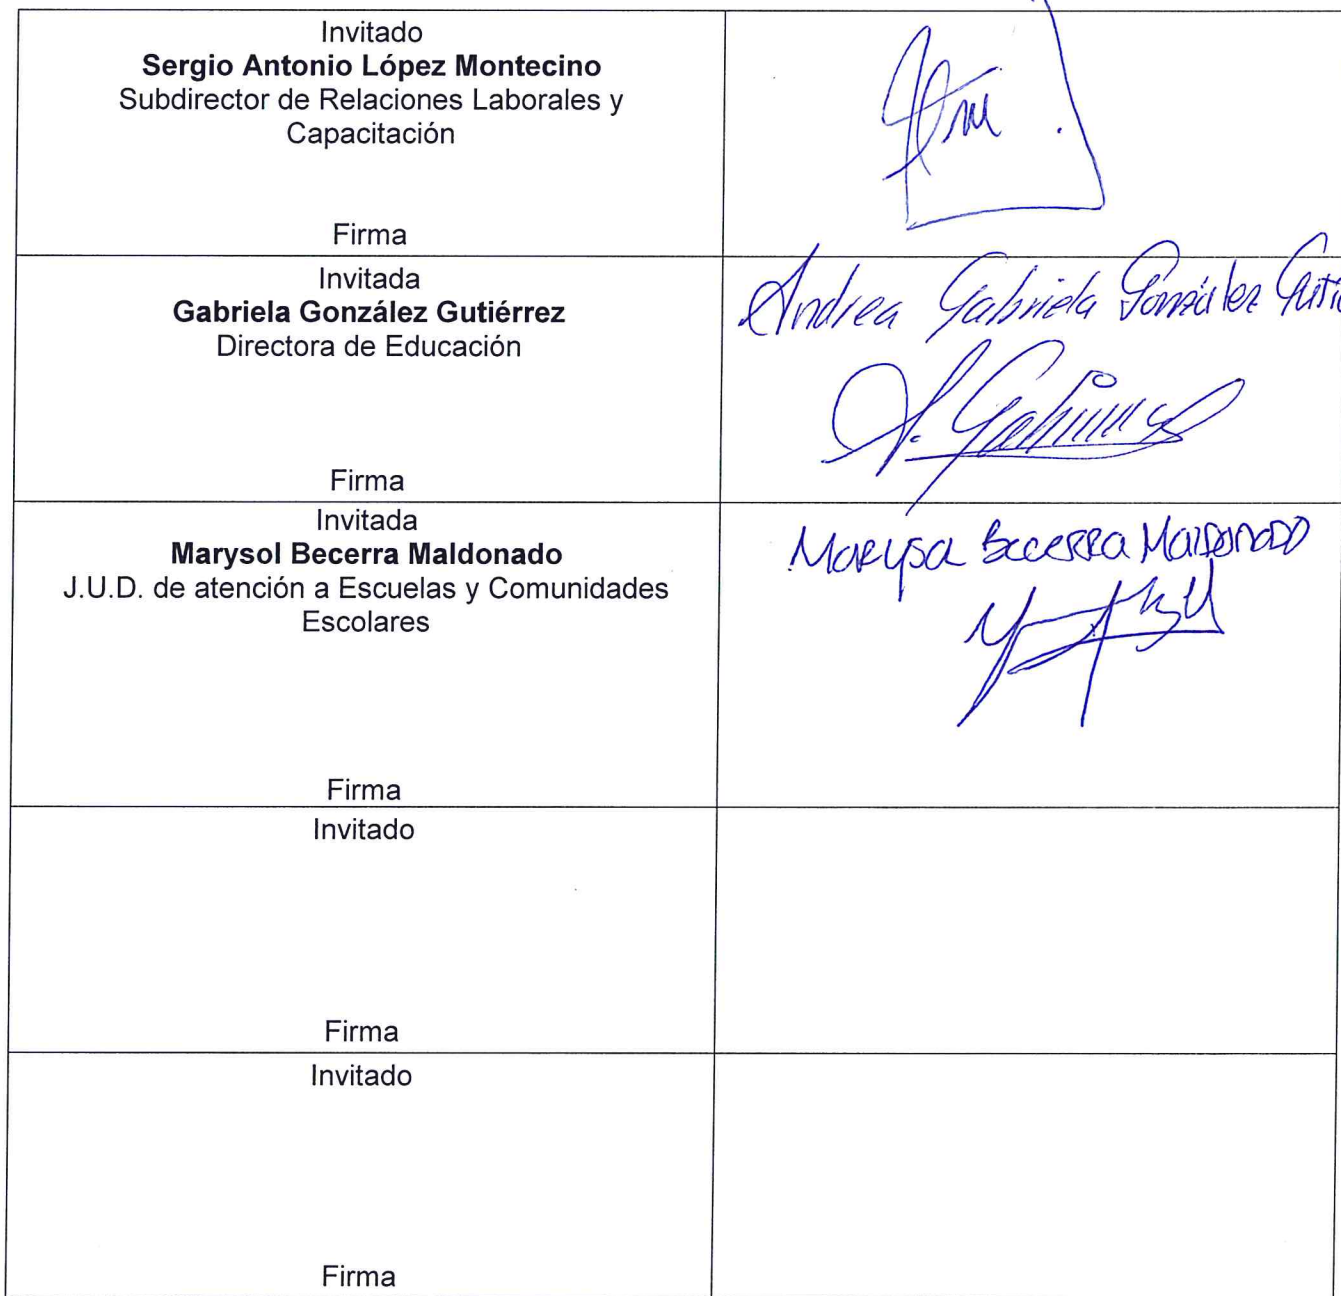 Invitado
Sergio Antonio López Montecino
Subdirector de Relaciones Laborales y
Capacitación
Firma
Invitada
Gabriela González Gutiérrez
Directora de Educación
Firma
Andrea Gabriela González
Invitada
Marysol Becerra Maldonado
J.U.D. de atención a Escuelas y Comunidades
Escolares
Firma
Marysol Becerra Maldonado
Invitado
Firma
Invitado
Firma